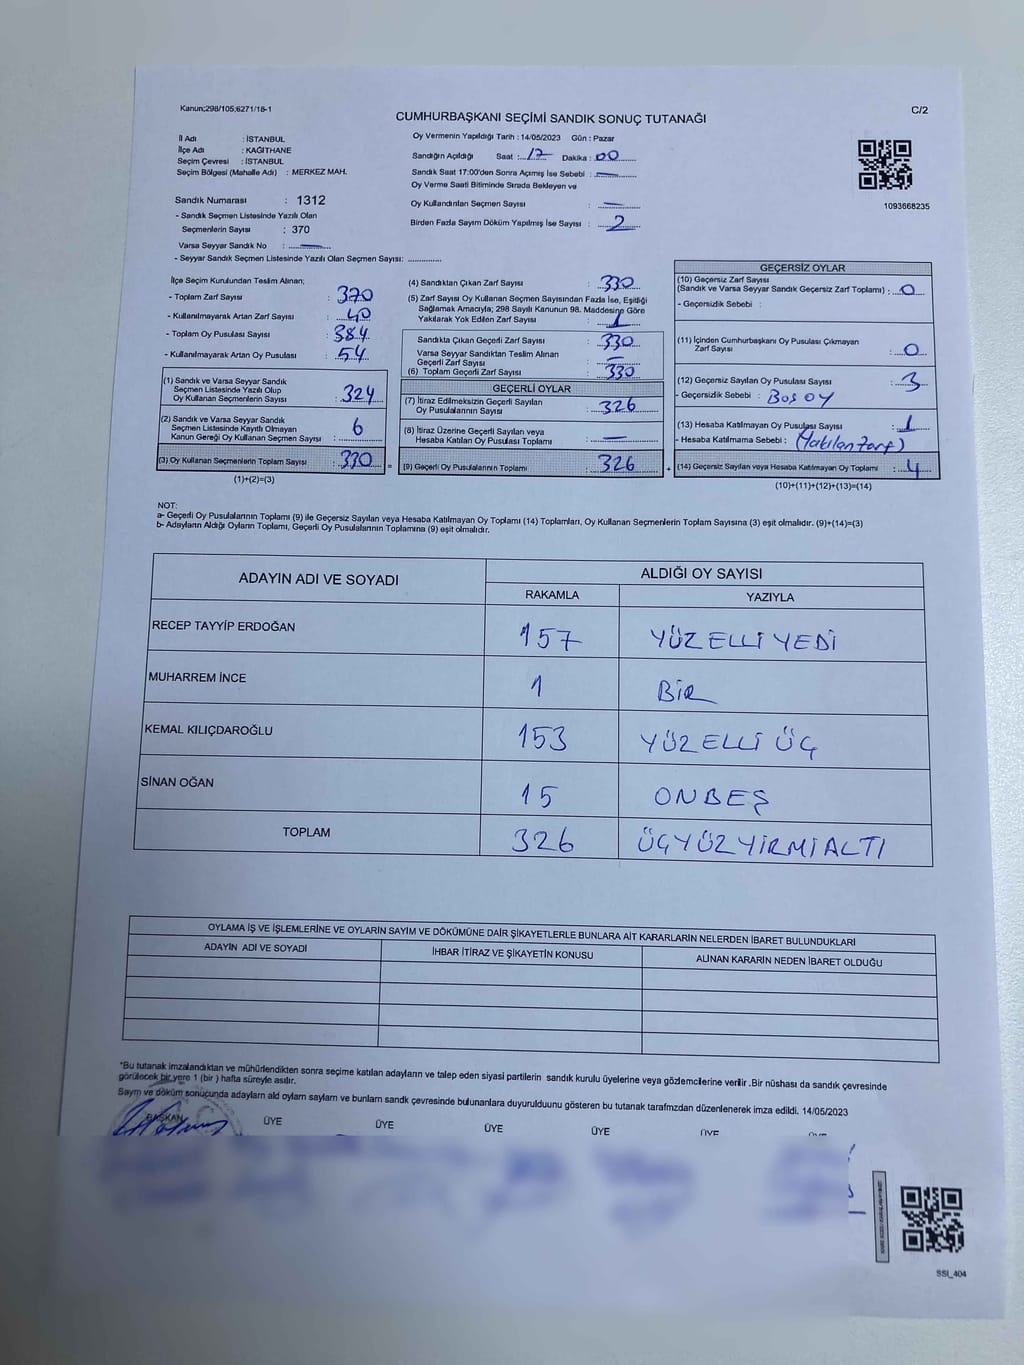 Kanun;298/105;6271/18-1
C/2
CUMHURBAŞKANI SEÇİMİ SANDIK SONUÇ TUTANAĞI
İl Adı : İSTANBUL
İlçe Adı : KAĞITHANE
Seçim Çevresi : İSTANBUL
Seçim Bölgesi (Mahalle Adı) : MERKEZ MAH.
Sandık Numarası : 1312
- Sandık Seçmen Listesinde Yazılı Olan
Seçmenlerin Sayısı : 370
Varsa Seyyar Sandık No : —
- Seyyar Sandık Seçmen Listesinde Yazılı Olan Seçmen Sayısı: ..............
Oy Vermenin Yapıldığı Tarih : 14/05/2023 Gün : Pazar
Sandığın Açıldığı Saat : 17 Dakika : 00
Sandık Saat 17:00'den Sonra Açımış İse Sebebi : —
Oy Verme Saati Bitiminde Sırada Bekleyen ve
Oy Kullandırılan Seçmen Sayısı : —
Birden Fazla Sayım Döküm Yapılmış İse Sayısı : 2
1093668235
İlçe Seçim Kurulundan Teslim Alınan;
- Toplam Zarf Sayısı : 370
- Kullanılmayarak Artan Zarf Sayısı : 40
- Toplam Oy Pusulası Sayısı : 384
- Kullanılmayarak Artan Oy Pusulası : 54
(1) Sandık ve Varsa Seyyar Sandık
Seçmen Listesinde Yazılı Olup
Oy Kullanan Seçmenlerin Sayısı : 324
(2) Sandık ve Varsa Seyyar Sandık
Seçmen Listesinde Kayıtlı Olmayan
Kanun Gereği Oy Kullanan Seçmen Sayısı : 6
(3) Oy Kullanan Seçmenlerin Toplam Sayısı : 330
(1)+(2)=(3)
(4) Sandıktan Çıkan Zarf Sayısı : 330
(5) Zarf Sayısı Oy Kullanan Seçmen Sayısından Fazla İse, Eşitliği
Sağlamak Amacıyla; 298 Sayılı Kanunun 98. Maddesine Göre
Yakılarak Yok Edilen Zarf Sayısı : 1
Sandıkta Çıkan Geçerli Zarf Sayısı : 330
Varsa Seyyar Sandıktan Teslim Alınan
Geçerli Zarf Sayısı : —
(6) Toplam Geçerli Zarf Sayısı : 330
GEÇERLİ OYLAR
(7) İtiraz Edilmeksizin Geçerli Sayılan
Oy Pusulalarının Sayısı : 326
(8) İtiraz Üzerine Geçerli Sayılan veya
Hesaba Katılan Oy Pusulası Toplamı : —
= (9) Geçerli Oy Pusulalarının Toplamı : 326
GEÇERSİZ OYLAR
(10) Geçersiz Zarf Sayısı
(Sandık ve Varsa Seyyar Sandık Geçersiz Zarf Toplamı) : 0
- Geçersizlik Sebebi :
(11) İçinden Cumhurbaşkanı Oy Pusulası Çıkmayan
Zarf Sayısı : 0
(12) Geçersiz Sayılan Oy Pusulası Sayısı : 3
- Geçersizlik Sebebi : BOŞ OY
(13) Hesaba Katılmayan Oy Pusulası Sayısı : 1
- Hesaba Katılmama Sebebi : (Yakılan zarf)
+ (14) Geçersiz Sayılan veya Hesaba Katılmayan Oy Toplamı : 4
(10)+(11)+(12)+(13)=(14)
NOT:
a- Geçerli Oy Pusulalarının Toplamı (9) ile Geçersiz Sayılan veya Hesaba Katılmayan Oy Toplamı (14) Toplamları, Oy Kullanan Seçmenlerin Toplam Sayısına (3) eşit olmalıdır. (9)+(14)=(3)
b- Adayların Aldığı Oyların Toplamı, Geçerli Oy Pusulalarının Toplamına (9) eşit olmalıdır.
ADAYIN ADI VE SOYADI
ALDIĞI OY SAYISI
RAKAMLA YAZIYLA
RECEP TAYYİP ERDOĞAN 157 YÜZ ELLİ YEDİ
MUHARREM İNCE 1 BİR
KEMAL KILIÇDAROĞLU 153 YÜZ ELLİ ÜÇ
SİNAN OĞAN 15 ONBEŞ
TOPLAM 326 ÜÇYÜZ YİRMİ ALTI
OYLAMA İŞ VE İŞLEMLERİNE VE OYLARIN SAYIM VE DÖKÜMÜNE DAİR ŞİKAYETLERLE BUNLARA AİT KARARLARIN NELERDEN İBARET BULUNDUKLARI
ADAYIN ADI VE SOYADI İHBAR İTİRAZ VE ŞİKAYETİN KONUSU ALINAN KARARIN NEDEN İBARET OLDUĞU
*Bu tutanak imzalandıktan ve mühürlendikten sonra seçime katılan adayların ve talep eden siyasi partilerin sandık kurulu üyelerine veya gözlemcilerine verilir .Bir nüshası da sandık çevresinde
görülecek bir yere 1 (bir ) hafta süreyle asılır.
Sayım ve döküm sonuçunda adayların ald oyların sayların ve bunların sandık çevresinde bulunanlara duyurulduunu gösteren bu tutanak tarafımzdan düzenlenerek imza edildi. 14/05/2023
BAŞKAN ÜYE ÜYE ÜYE ÜYE ÜYE ÜYE
SSI_404